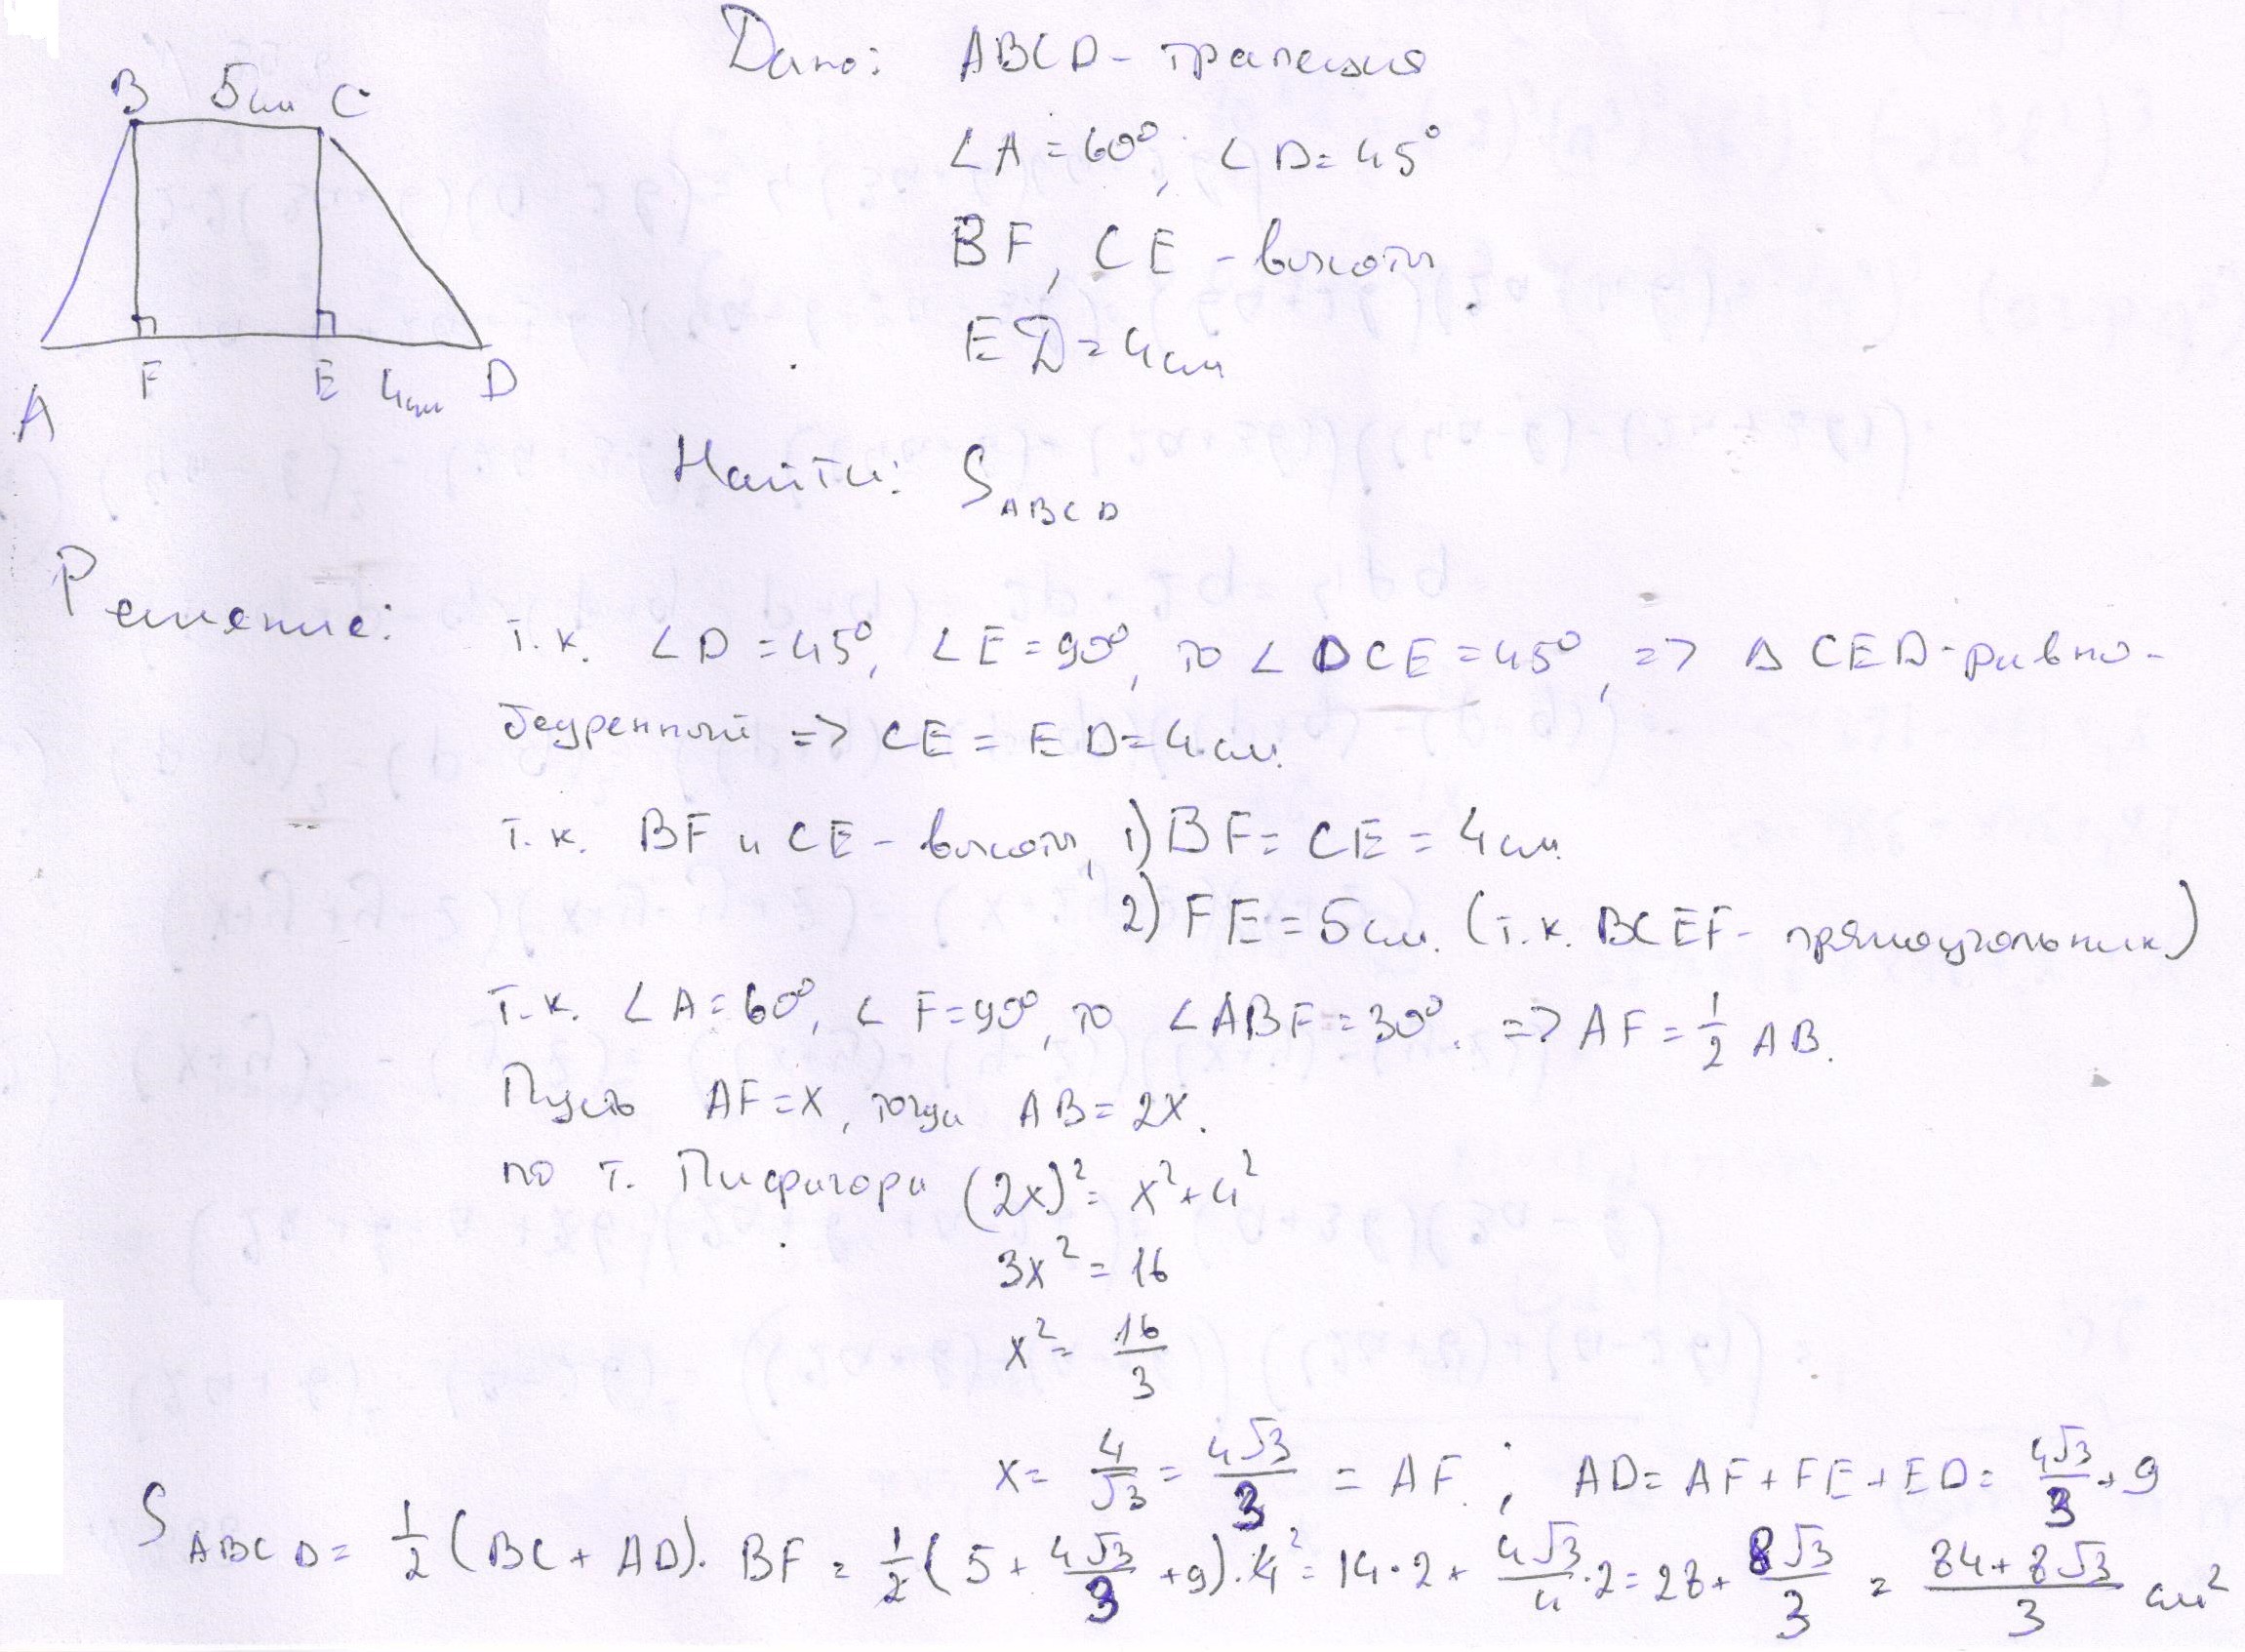 B 5см C
F E 4см D
A
Дано: ABCD - трапеция
∠A = 60°, ∠D = 45°
BF, CE - высоты
ED = 4см
Найти: S ABCD
Решение:
т.к. ∠D = 45°, ∠E = 90°, то ∠DCE = 45°, => Δ CED - равно-
бедренный => CE = ED = 4 см.
т.к. BF и CE - высоты, 1) BF = CE = 4 см.
2) FE = 5 см. (т.к. BCEF - прямоугольник)
т.к. ∠A = 60°, ∠F = 90°, то ∠ABF = 30°. => AF = 1/2 AB.
Пусть AF = x, тогда AB = 2x.
по т. Пифагора (2x)² = x² + 4²
3x² = 16
x² = 16/3
x = 4/√3 = 4√3/3 = AF. ; AD = AF + FE + ED = 4√3/3 + 9
S ABCD = 1/2 (BC + AD) · BF = 1/2 (5 + 4√3/3 + 9) · 4² = 14 · 2 + 4√3/4 · 2 = 28 + 8√3/3 = 84 + 8√3/3 см²